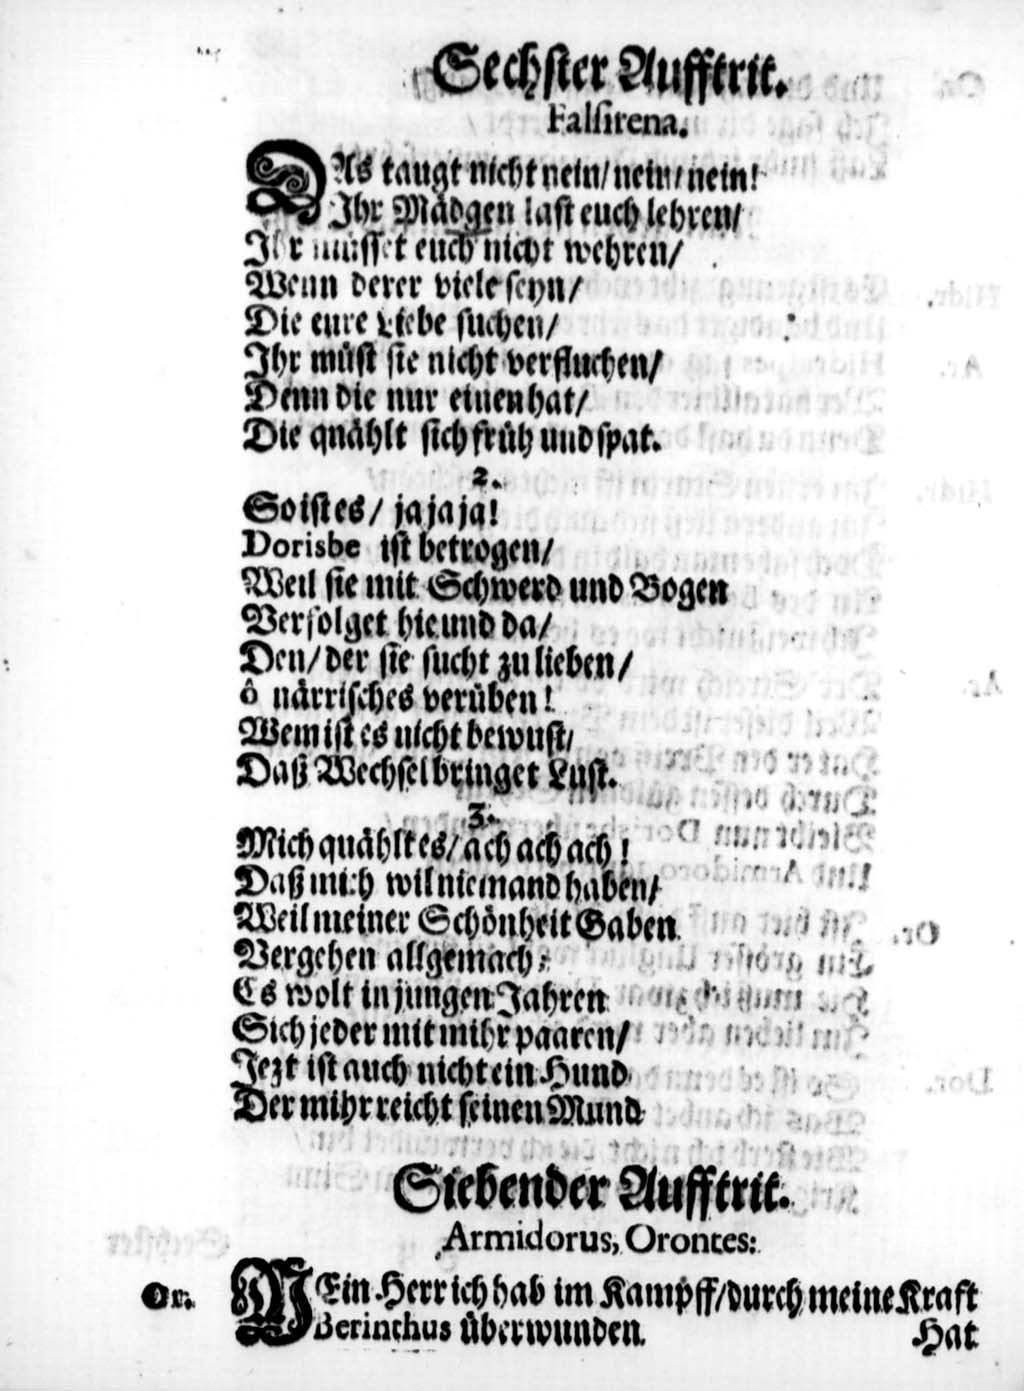 Sechster Aufftrit.
Falsirena.
DAs taugt nicht nein/ nein/ nein!
Ihr Mådgen last euch lehren/
Ihr můsset euch nicht wehren/
Wenn derer viele seyn/
Die eure Liebe suchen/
Ihr můst sie nicht verfluchen/
Denn die nur einen hat/
Die quåhlt sich früh und spat.
2.
So ist es/ ja ja ja!
Dorisbe ist betrogen/
Weil sie mit Schwerd und Bogen
Verfolget hie und da/
Den/ der sie sucht zu lieben/
ô nårrisches verüben!
Wem ist es nicht bewust/
Daß Wechsel bringet Lust.
3.
Mich quåhlt es/ ach ach ach!
Daß mich wil niemand haben/
Weil meiner Schönheit Gaben
Vergehen allgemach:
Es wolt in jungen Jahren
Sich jeder mit mihr paaren/
Jezt ist auch nicht ein Hund
Der mihr reicht seinen Mund
Siebender Aufftrit.
Armidorus, Orontes:
Or. MEin Herr ich hab im Kampff/ durch meine Kraft
Berinthus überwunden.
Hat